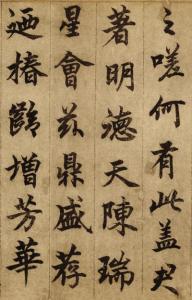 之嗟何有此盖
著明德天陳瑞
星會茲鼎盛荐
迺椿齡增芳華